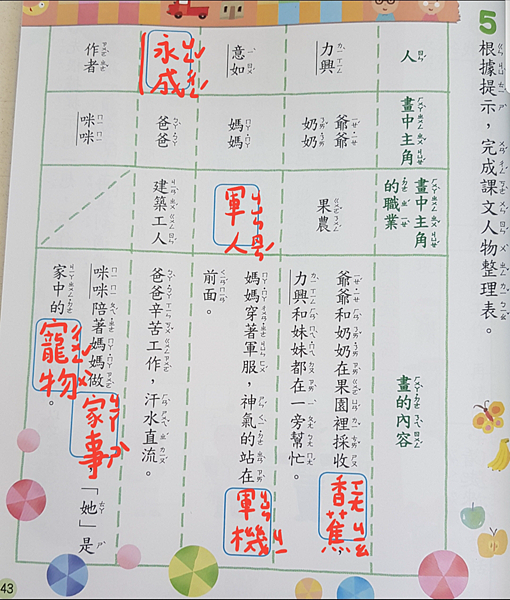 5
根據提示，完成課文人物整理表。
人
畫中主角
畫中主角
的職業
畫的內容
力興
爺爺
奶奶
果農
爺爺和奶奶在果園裡採收香蕉，
力興和妹妹都在一旁幫忙。
意如
媽媽
軍人
媽媽穿著軍服，神氣的站在軍機
前面。
永成
爸爸
建築工人
爸爸辛苦工作，汗水直流。
作者
咪咪
咪咪陪著媽媽做家事，「她」是
家中的寵物。
43